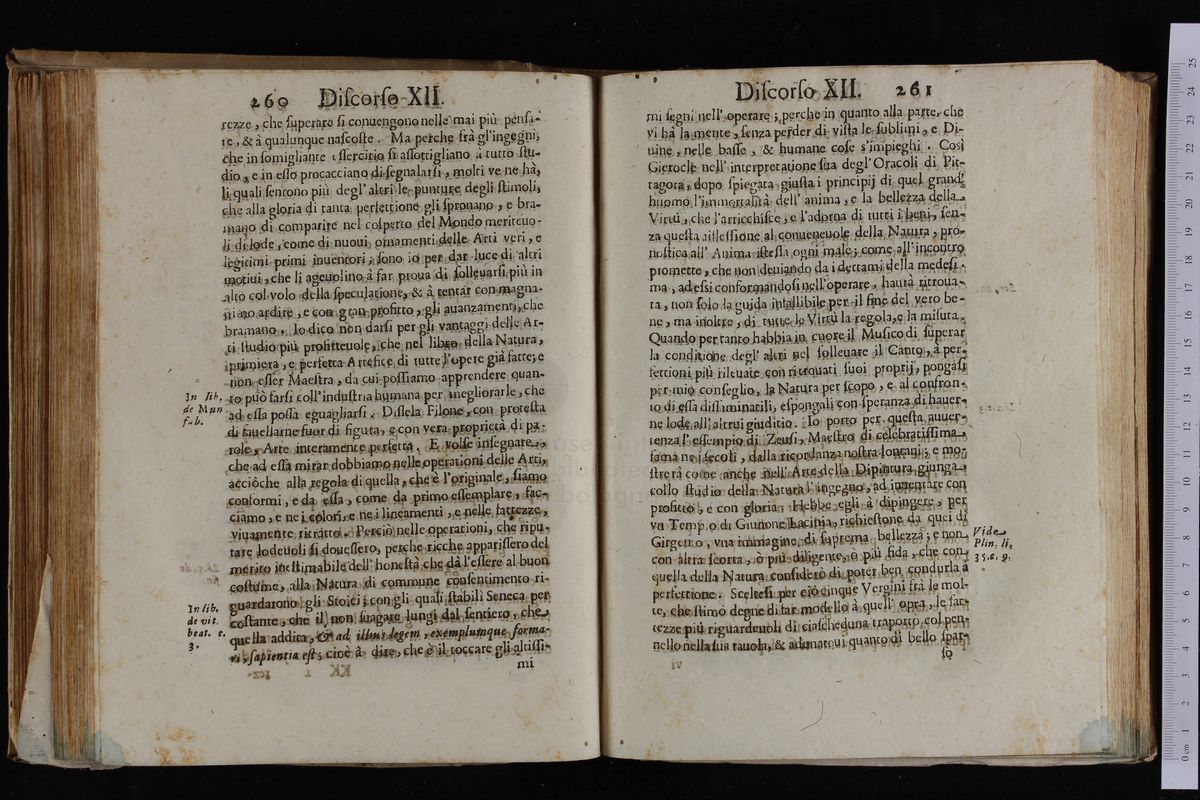 260 Diſcorſo XII.
rezze, che ſuperare ſi conuengono nelle mai più penſa-
te, & à qualunque naſcoſte. Ma perche frà gl'ingegni,
che in ſomigliante eſſercitio ſi aſſottigliano à tutto ſtu-
dio, e in eſſo procacciano di ſegnalarſi, molti ve ne hà,
li quali ſentono più degl'altri le punture degli ſtimoli,
che alla gloria di tanta perfettione gli ſpronano, e bra-
mano di comparire nel coſpetto del Mondo meriteuo-
li di lode, come di nuoui ornamenti delle Arti veri, e
legitimi primi inuentori; ſono io per dar luce di altri
motiui, che li ageuolino à far proua di ſolleuarſi più in
alto col volo della ſpeculatione, & à tentar con magna-
nimo ardire, e con gran profitto, gli auanzamenti, che
bramano. Io dico non darſi per gli vantaggi delle Ar-
ti ſtudio più profitteuole, che nel libro della Natura,
primiera, e perfetta Artefice di tutte l'opere già fatte; e
non eſſer Maeſtra, da cui poſſiamo apprendere quan-
In lib. to può farſi coll'induſtria humana per megliorarle, che
de Mun ad eſſa poſſa eguagliarſi. Diſſela Filone, con proteſta
fab. di fauellarne fuor di figura, e con vera proprietà di pa-
role, Arte interamente perfetta. E volſe inſegnare,
che ad eſſa mirar dobbiamo nelle operationi delle Arti,
acciòche alla regola di quella, che è l'originale, ſiamo
conformi, e da eſſa, come da primo eſſemplare, fac-
ciamo, e ne i colori, e ne i lineamenti, e nelle fattezze,
viuamente ritratto. Perciò nelle operationi, che ripu-
tare lodeuoli ſi doueſſero, perche ricche appariſſero del
merito ineſtimabile dell'honeſtà che dà l'eſſere al buon
coſtume, alla Natura di commune conſentimento ri-
In lib. guardarono gli Stoici; con gli quali ſtabilì Seneca per
de vit. coſtante, che il non ſuagare lungi dal ſentiero, che
beat. c. quella addita, & ad illius legem, exemplumque forma-
3. ri, ſapientia eſt; cioè à dire, che è il toccare gli altiſſi-
mi
Diſcorſo XII. 261
mi ſegni nell'operare; perche in quanto alla parte, che
vi hà la mente, ſenza perder di viſta le ſublimi, e Di-
uine, nelle baſſe, & humane coſe s'impieghi. Così
Gierocle nell'interpretatione ſua degl'Oracoli di Pit-
tagora, dopo ſpiegata giuſta i principij di quel grand'
huomo l'immortalità dell'anima, e la bellezza della
Virtù, che l'arricchiſce; e l'adorna di tutti i beni, ſen-
za queſta rifleſſione al conueneuole della Natura, pro-
noſtica all'Anima iſteſſa ogni male; come all'incontro
promette, che non deuiando da i dettami della medeſi-
ma, ad eſſi conformandoſi nell'operare, haurà ritroua-
ta, non ſolo la guida infallibile per il fine del vero be-
ne, ma inoltre, di tutte le Virtù la regola, e la miſura.
Quando per tanto habbia in cuore il Muſico di ſuperar
la conditione degl'altri nel ſolleuare il Canto, à per-
fettioni più rileuate con ritrouati ſuoi proprij, pongaſi
per mio conſeglio, la Natura per ſcopo, e al confron-
to di eſſa diſſaminatili, eſpongali con ſperanza di hauer-
ne lode all'altrui giuditio. Io porto per queſta auuer-
tenza l'eſſempio di Zeuſi, Maeſtro di celebratiſſima
fama ne i ſecoli, dalla ricordanza noſtra lontani; e mo-
ſtrerà come anche nell'Arte della Dipintura giunga
collo ſtudio della Natura l'ingegno, ad inuentare con
profitto, e con gloria. Hebbe egli à dipingere, per
vn Tempio di Giunone Lacinia, richieſtone da quei di
Girgento, vna immagine di ſuprema bellezza; e non Vide
con altra ſcorta, ò più diligente, ò più fida, che con Plin. li.
quella della Natura conſiderò di poter ben condurla à 35. c. 9.
perfettione. Sceltesi per ciò cinque Vergini frà le mol-
te, che ſtimò degne di far modello à quell'opra, le fat-
tezze più riguardeuoli di ciaſcheduna traportò col pen-
nello nella ſua tauola, & adunatoui quanto di bello ſpar-
ſo